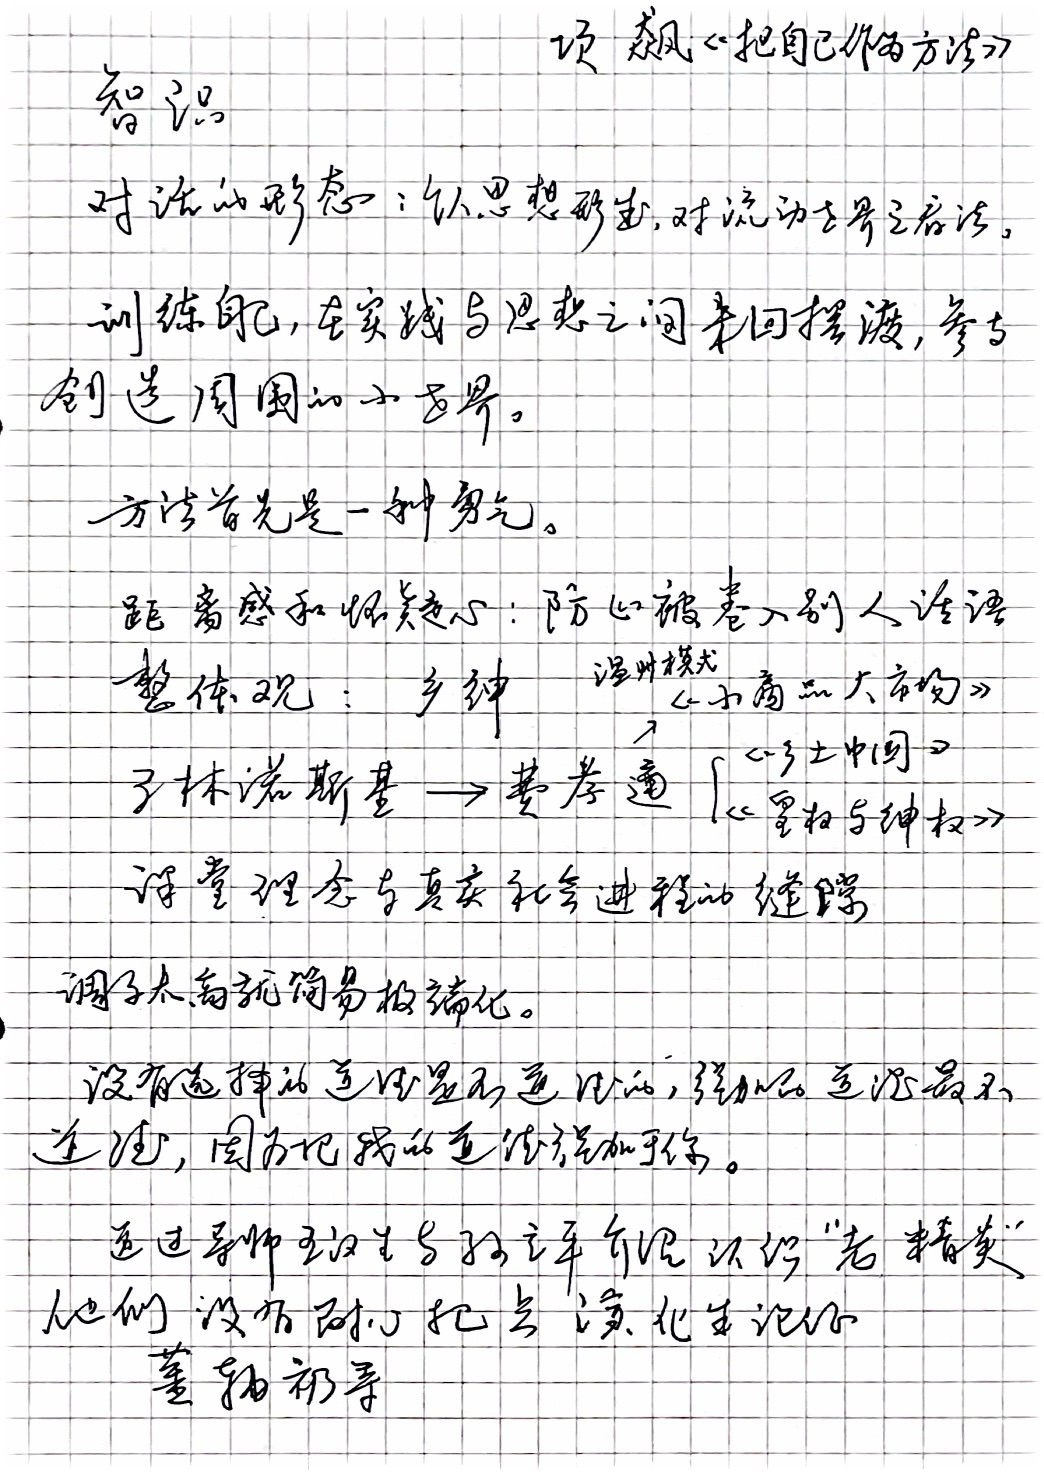 项 飙《把自己作为方法》
智识
对话的形态：从思想形式，对流动世界之看法。
训练自己，在实践与思想之间来回摆渡，参与
创造周围的小世界。
方法首先是一种勇气。
距离感和怀疑心：防止被卷入别人话语
整体观： 乡绅 温州模式 《小商品大市场》
马林诺斯基 → 费孝通 ↗ 《乡土中国》
《皇权与绅权》
课堂理念与真实社会进程的缝隙
调子太高就简易极端化。
没有选择的道德是不道德的，强加的道德最不
道德，因为把我的道德强加于你。
通过导师王汉生与孙立平介绍认识“老精英”
他们没有耐心把